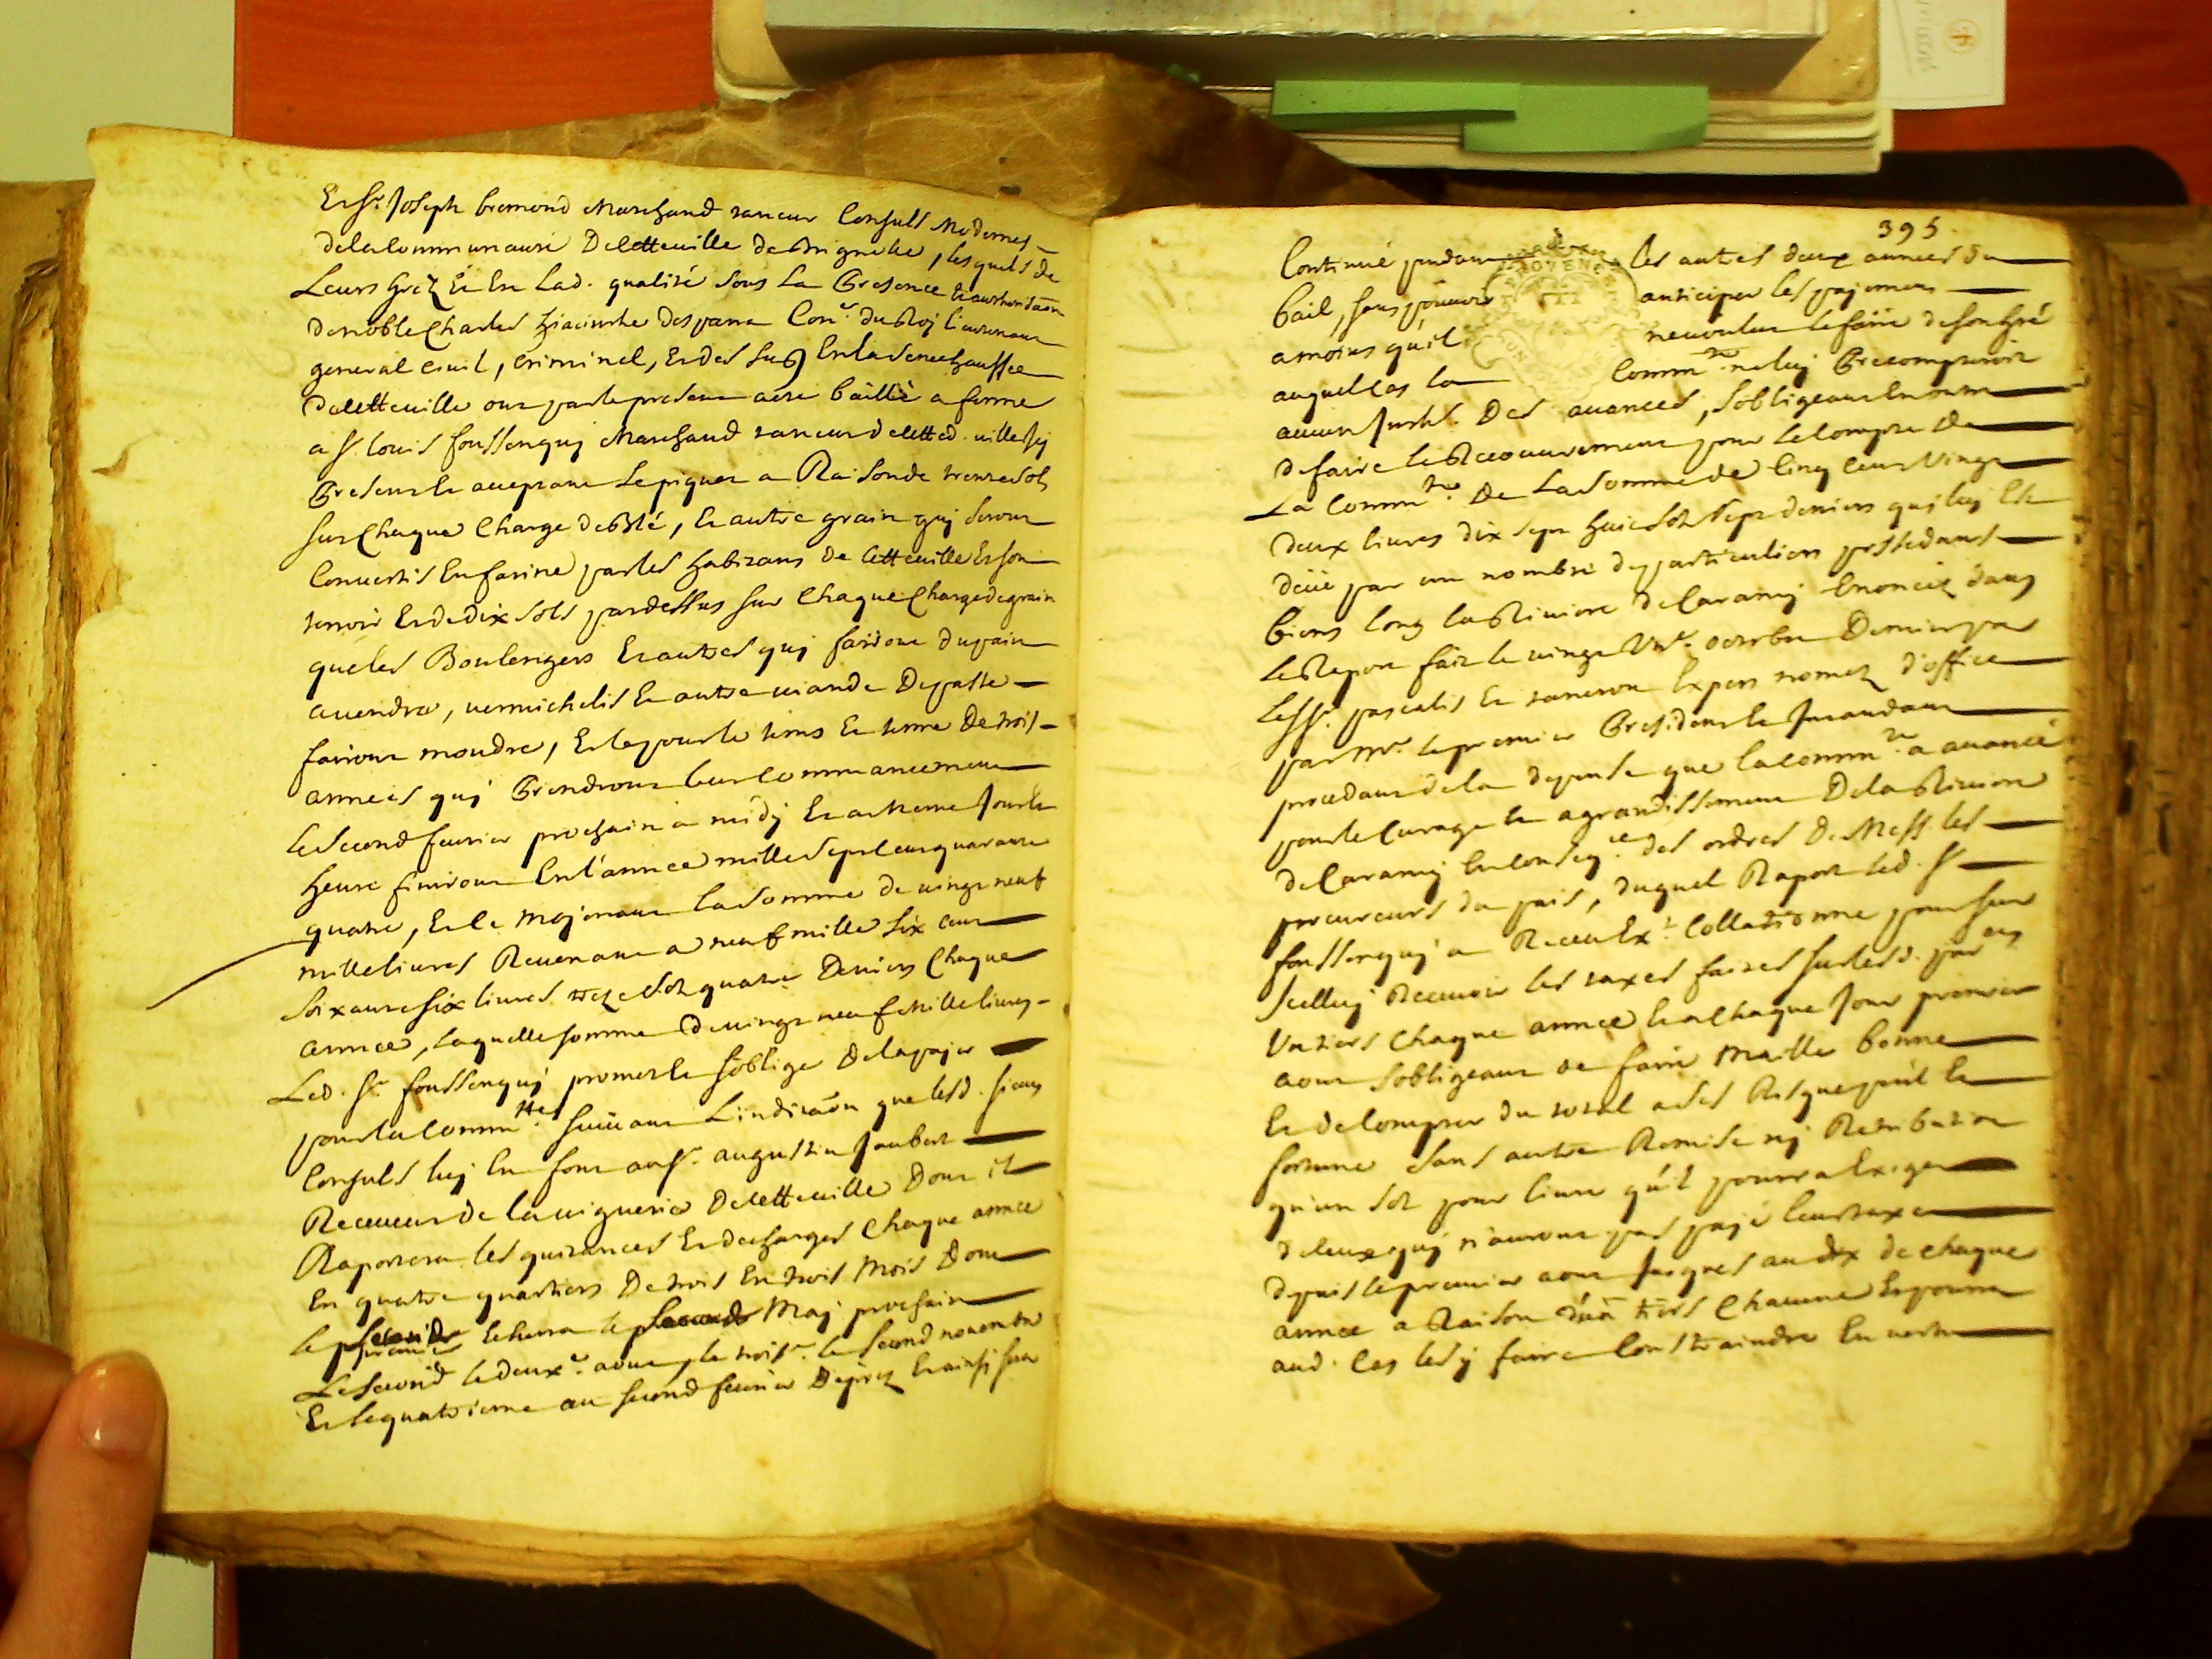 Et Sr. Joseph bremond Marchand taneur Consuls Modernes
de la Communauté De cette ville de Brignolle, lesquels de
Leurs gréz Et En Lad. qualité sous La Presence Et authorisaon
de noble Charles hiacinthe despana Conr. du Roy lieutenant
general Civil, Criminel, Et des subs En la senechaussée
de cette ville ont par le present acte baillé a ferme
a Sr. louis foussenquy Marchand taneur de cetted. ville Icy
Present Et aceptant Le piquet a Raison de trente sols
sur Chaque Charge de Blé, Et autre grain quy seront
Convertis En farine par les habitans de cette ville Et son
terroir Et de dix sols par dessus sur Chaque Charge de grain
que les Boulengers Et autres quy fairont du pain
a vendre, vermichelis Et autre viande De patte
fairont moudre, Et le pour le tems Et terme De trois
années quy Prendront leur Commancement
le second fevrier prochain a midy Et a meme Jour Et
heure finiront En l'année mille sept cens quarante
quatre, Et le Mojenant la somme de vingt neuf
mille livres Revenant a neuf mille six cent
soixante six livres treze sols quatre Deniers Chaque
année, laquelle somme de vingt neuf mille livres
Led. Sr. foussenquy promet Et s'oblige De la payer
pour la Commté. suivant L'indicaõn que lesd. sieurs
Consuls luy En font au Sr. augustin Jaubert
Receveur de la viguerie De cette ville Dont il
Raportera les quitances Et decharges Chaque année
En quatre quartiers De trois En trois Mois Dont
le premier Echerra le second May prochain
Le second le deuxe. aoust, le troise. le second novembre
Et le quatrieme au second fevrier Dapréz Et ainsi sera
395.
Continué pendant les autres deux années du
bail, sans pouvoir anticiper les pajemens
a moins qu'il ne voulut le faire de son gré
auquel cas la Commté. ne luy Precomptera
aucun Intht. Des avances, s'obligeant En outre
de faire le Recouvrement pour le Compte De
La Commté. De La somme de Cinq Cens Vingt
deux livres dix sept huit sols sept deniers qui luy Est
deüe par un nombre de particuliers possedans
biens long la Riviere de Caramy Enoncéz dans
le Raport fait le vingt Unr. octobre Dernier par
les Srs. pascalis Et taneron Experts noméz d'office
par Mr. le premier President Et Intandant
procedant de la depense que la Commté. a avancé
pour le Curage Et agrandissement De la Riviere
de Caramy En Conseqce. des ordres De Mess. les
procureurs du pais, duquel Raport led. Sr.
foussenquy a Receu Ext. Collationné pour sur
Icelluy Recevoir les taxes faites sur lesd. par ers
Un tiers Chaque année Et a Chaque Jour premier
aout s'obligeant de faire Maille bonne
Et de Compter du total a ses Risque peril Et
fortune sans autre Remise ny Retribution
qu'un sol pour livre qu'il pourra Exiger
de Ceux quy n'auront pas payé leur taxe
depuis le premier aout Jusques au dix de chaque
année a Raison d'un tiers Chacune Et pourra
aud. Cas les y faire Constraindre En vertu